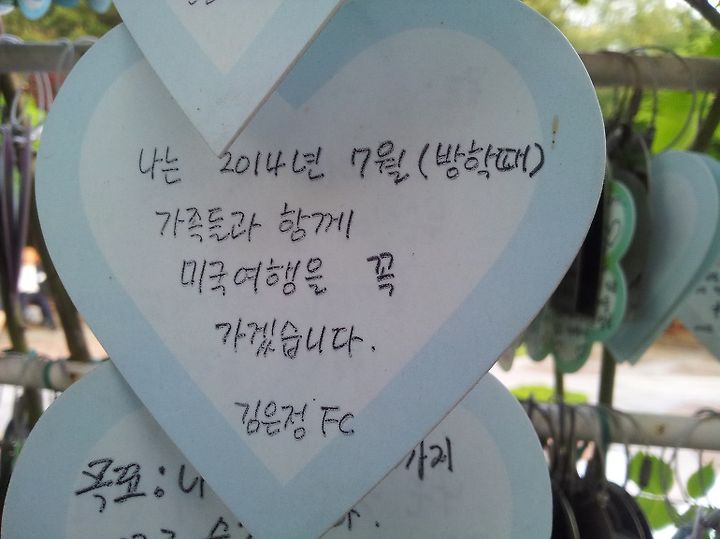 나는 2014년 7월 (방학때)
가족들과 함께
미국여행을 꼭
가겠습니다.
김은정 FC
목표: 나